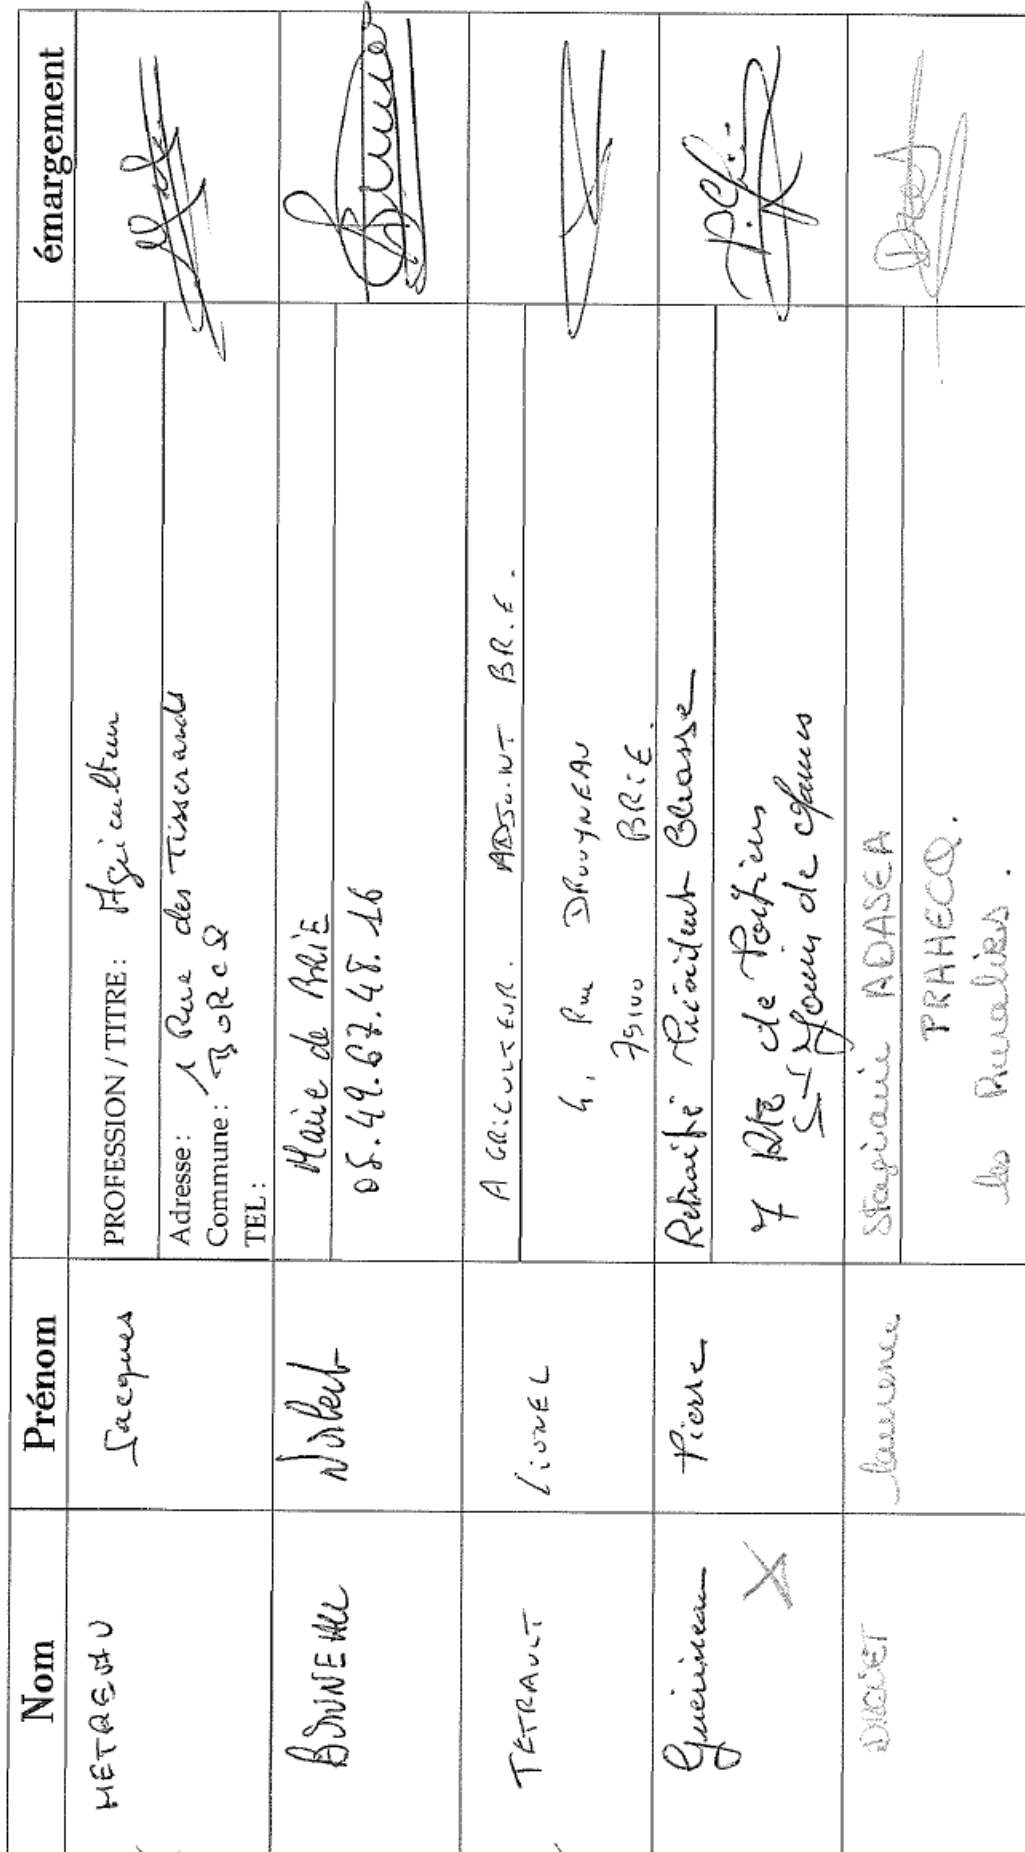 Nom Prénom émargement
METREAU Jacques PROFESSION / TITRE : Agriculteur
Adresse : 1 Rue des Tisserands
Commune : BORCQ
TEL :
BONNEAU Norbert Maire de BRIE
05.49.67.48.16
TETRAULT LIONEL AGRICULTEUR. ADJOINT BRIE.
4, Rue DROUYNEAU
79100 BRIE.
Guerineau Pierre Retraité Président Chasse
7 Rte de Poitiers
St Jouin de Marnes
DROUET Laurence Stagiaire ADASEA
PRAHECQ.
les Ruralies.